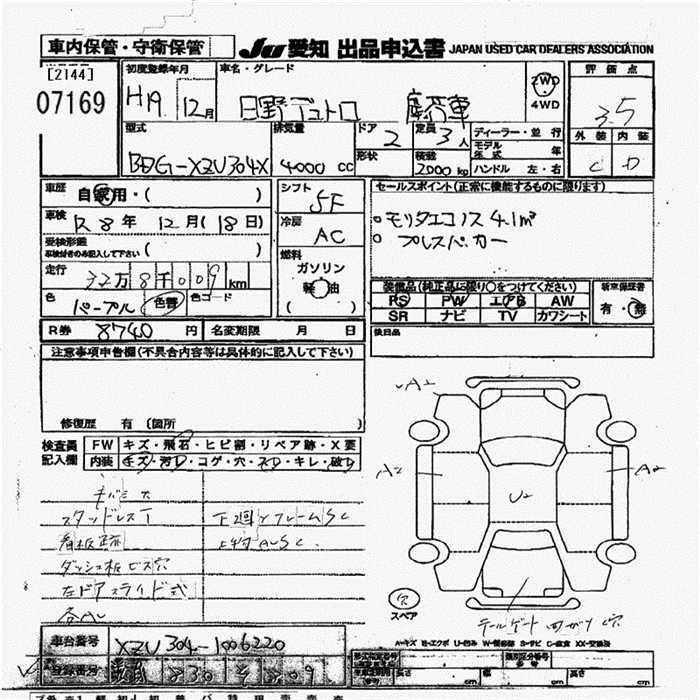 車内保管・守衛保管
JU 愛知 出品申込書 JAPAN USED CAR DEALERS ASSOCIATION
[2144]
07169
初度登録年月
H19 12月
車名・グレード
日野デュトロ 塵芥車
2WD
4WD
評価点
3.5
外装 内装
C D
型式
BDG-XZU304X
排気量
4000 CC
ドア
2
形状
定員
3人
積載
2000 kg
ディーラー・並行
モデル年式 年
ハンドル 左・右
車歴
自家用・( )
車検
R8年 12月(18日)
受検形態
車検付きのみ記入して下さい
走行
32万8千009 km
色
パープル 色替
色コード
シフト
5F
冷房
AC
燃料
ガソリン
軽油
( )
セールスポイント(正常に機能するものに限ります)
○ モリタエコノス 4.1m³
○ プレスパッカー
装備品(純正品に限り○をつけてください)
PS PW エアB AW
SR ナビ TV カワシート
新車保証書
有・無
R券 8740 円
名変期限 月 日
後日品
注意事項申告欄(不具合内容等は具体的に記入して下さい)
修復歴 有 〔箇所 〕
検査員記入欄
FW キズ・飛石・ヒビ割・リペア跡・X要
内装 キズ・汚D・コゲ・穴・スD・キレ・破D
キバミ大
スタッドレスT
看板跡
ダッシュ板ビス穴
左ドアスライド式
各AU
下廻りフレームSC
上物AUSC.
A2
A2
U2
A2
穴
スペア
テールゲート 曲がり 穴
A-キズ E-エクボ U-凹み W-補修跡 S-サビ C-腐食 XX-交換済
車台番号 XZU304-1006220
登録番号 830 209
長さ cm
幅 cm
高さ cm